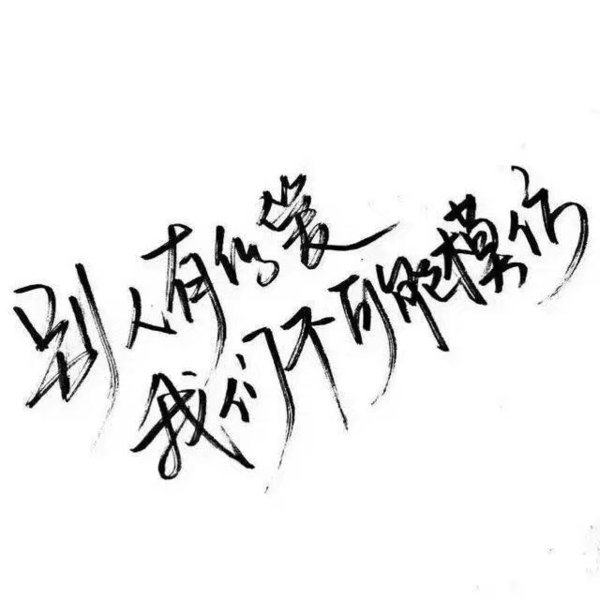 别人有伪装
我们不可能模仿